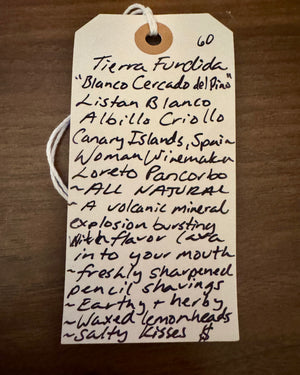 60
Tierra Fundida
"Blanco Cercado del Pino"
Listan Blanco
Albillo Criollo
Canary Islands, Spain
Woman Winemaker
Loreto Pancorbo
~ALL NATURAL
~A volcanic mineral
explosion bursting
with flavor lava
in to your mouth
~freshly sharpened
pencil shavings
~Earthy + herby
~Waxed lemonheads
~Salty kisses $